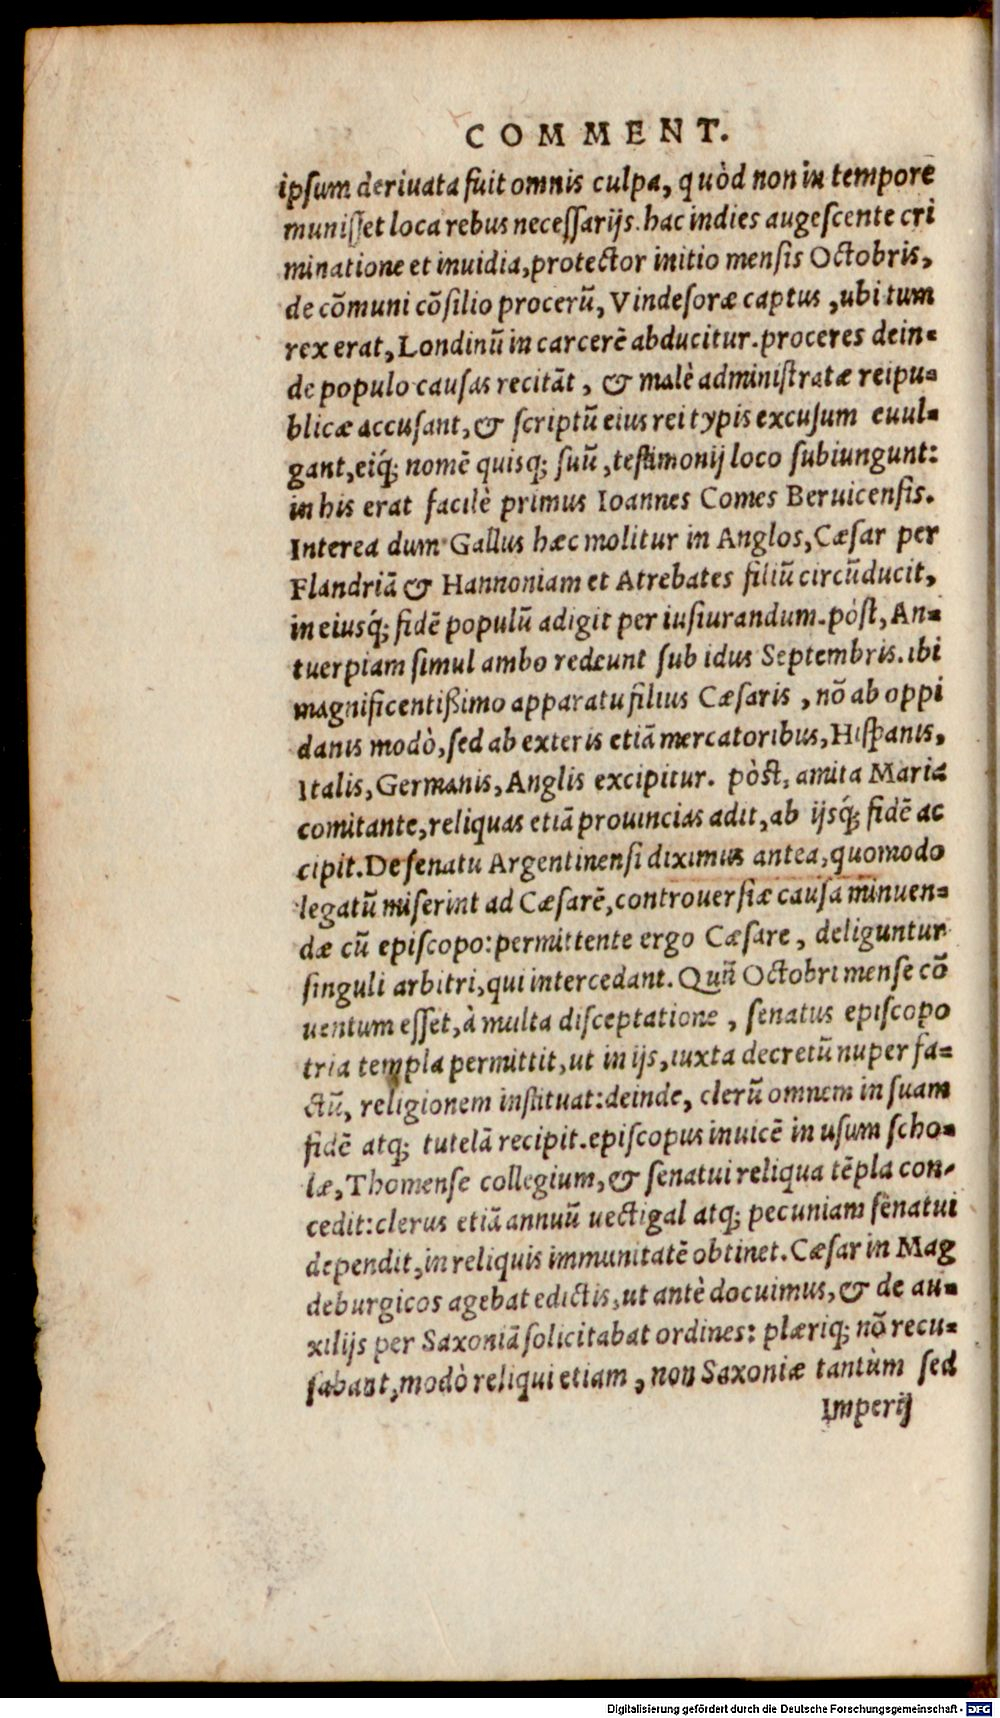 COMMENT.
ipsum deriuata fuit omnis culpa, quòd non in tempore
munisset loca rebus necessarijs. hac indies augescente cri
minatione et inuidia, protector initio mensis Octobris,
de cōmuni cōsilio procerū, Vindesoræ captus, ubi tum
rex erat, Londinū in carcerē abducitur. proceres dein-
de populo causas recitāt, & malè administratæ reipu-
blicæ accusant, & scriptū eius rei typis excusum euul-
gant, eiq́; nomē quisq; suū, testimonij loco subiungunt:
in his erat facilè primus Ioannes Comes Beruicensis.
Interea dum Gallus hæc molitur in Anglos, Cæsar per
Flandriā & Hannoniam et Atrebates filiū circūducit,
in eiusq́; fidē populū adigit per iusiurandum. pòst, An-
tuerpiam simul ambo redeunt sub idus Septembris. ibi
magnificentißimo apparatu filius Cæsaris, nō ab oppi
danis modò, sed ab exteris etiā mercatoribus, Hispanis,
Italis, Germanis, Anglis excipitur. pòst, amita Maria
comitante, reliquas etiā prouincias adit, ab ijsq́; fidē ac
cipit. De senatu Argentinensi diximus antea, quomodo
legatū miserint ad Cæsarē, controuersiæ causa minuen-
dæ cū episcopo: permittente ergo Cæsare, deliguntur
singuli arbitri, qui intercedant. Quū Octobri mense cō
uentum esset, à multa disceptatione, senatus episcopo
tria templa permittit, ut in ijs, iuxta decretū nuper fa-
ctū, religionem instituat: deinde, clerū omnem in suam
fidē atq; tutelā recipit. episcopus inuicē in usum scho-
læ, Thomense collegium, & senatui reliqua tēpla con-
cedit: clerus etiā annuū uectigal atq; pecuniam senatui
dependit, in reliquis immunitatē obtinet. Cæsar in Mag
deburgicos agebat edictis, ut antè docuimus, & de au-
xilijs per Saxoniā solicitabat ordines: plæriq; nō recu-
sabant, modò reliqui etiam, non Saxoniæ tantùm sed
Imperij
Digitalisierung gefördert durch die Deutsche Forschungsgemeinschaft - DFG